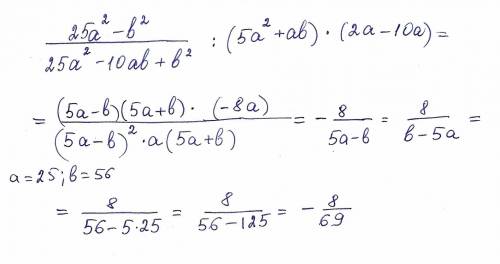 (25a² - b²)/(25a² - 10ab + b²) : (5a² + ab) · (2a - 10a) =
= ((5a - b)(5a + b) · (-8a))/((5a - b)² · a(5a + b)) = - 8/(5a - b) = 8/(b - 5a) =
a = 25; b = 56
= 8/(56 - 5·25) = 8/(56 - 125) = - 8/69